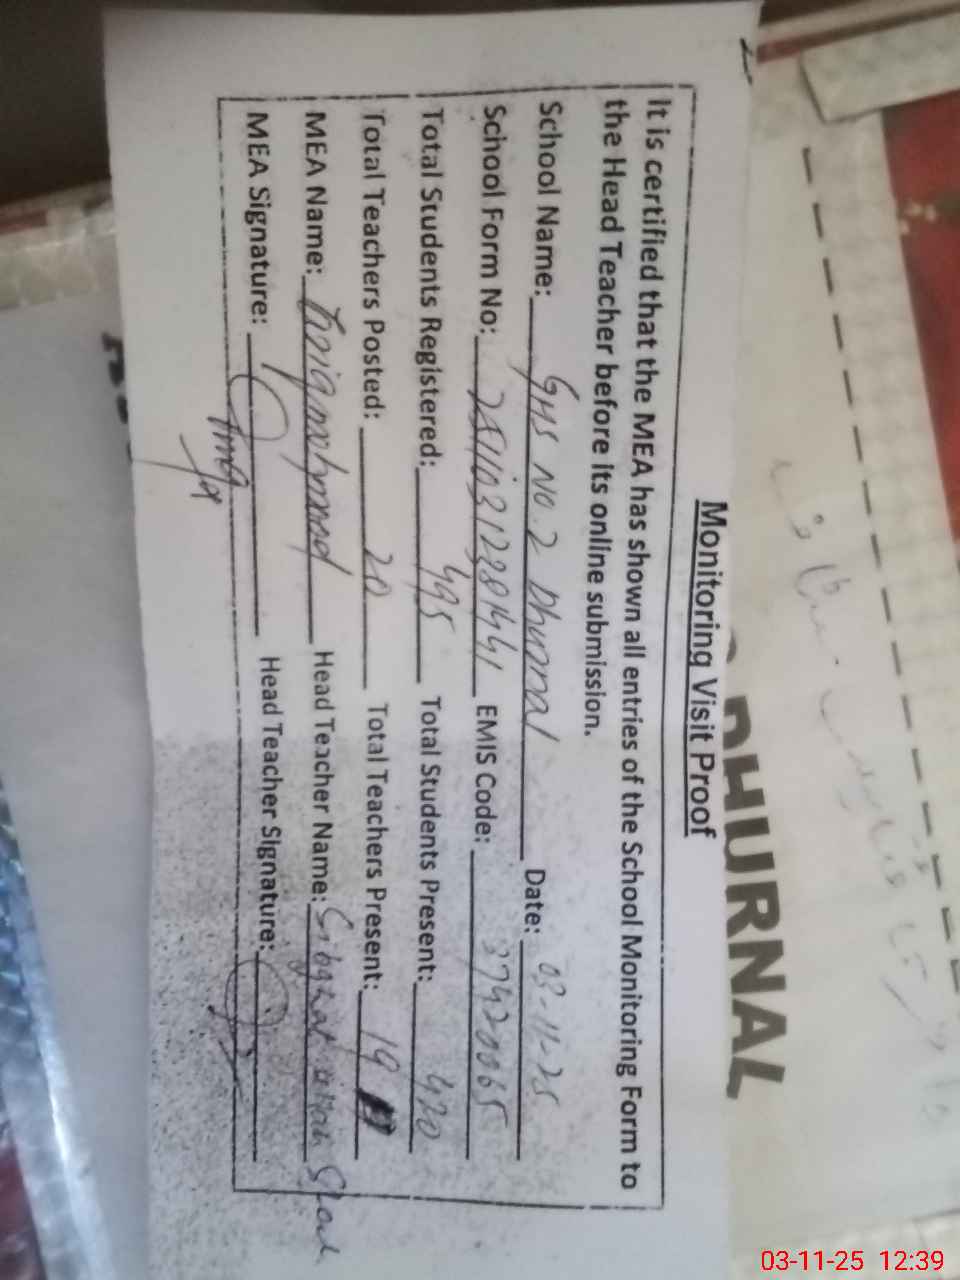 Monitoring Visit Proof
It is certified that the MEA has shown all entries of the School Monitoring Form to
the Head Teacher before its online submission.
School Name: GHS No.2 Dhurnal Date: 03-11-25
School Form No: 25110312381441 EMIS Code: 37420065
Total Students Registered: 495 Total Students Present: 420
Total Teachers Posted: 20 Total Teachers Present: 19
MEA Name: Head Teacher Name:
MEA Signature: Head Teacher Signature:
DHURNAL
03-11-25 12:39